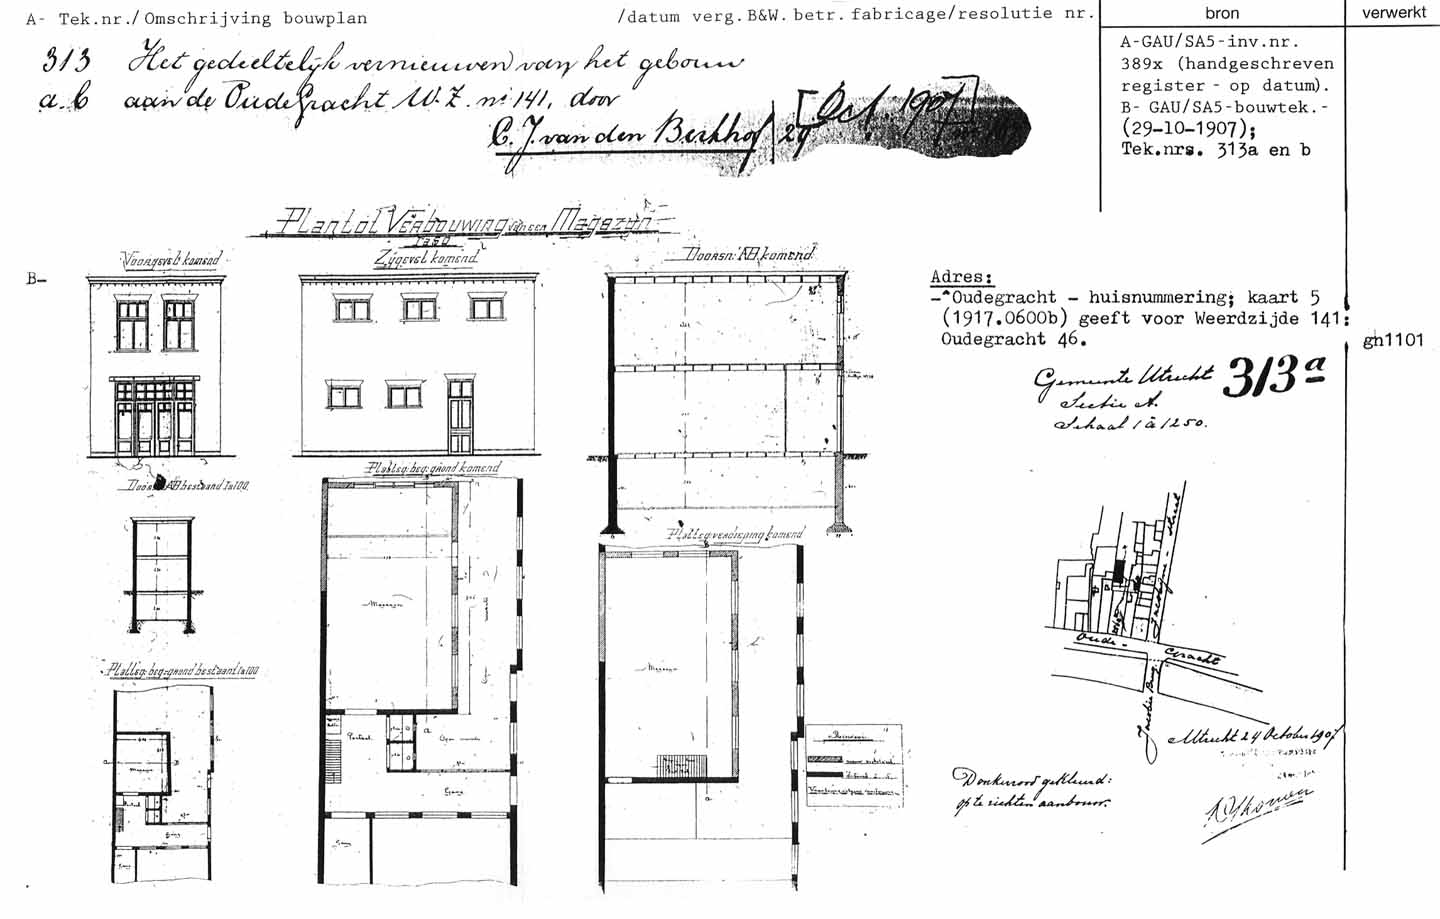 A- Tek.nr./Omschrijving bouwplan
/datum verg.B&W. betr. fabricage/resolutie nr.
bron
verwerkt
313 Het gedeeltelijk vernieuwen van het gebouw
a.b aan de Oude Gracht W.Z. nº 141, door
C. J. van den Berkhof / 29 [Oct. 1907]
A-GAU/SA5-inv.nr.
389x (handgeschreven
register - op datum).
B- GAU/SA5-bouwtek.-
(29-10-1907);
Tek.nrs. 313a en b
Plan tot Verbouwing van een Magazijn
B-
Voorgevel komend
Zijgevel komend
Doorsn: AB komend
Adres:
-Oudegracht - huisnummering; kaart 5
(1917.0600b) geeft voor Weerdzijde 141:
Oudegracht 46.
gh1101
Gemeente Utrecht 313a
Sectie A.
Schaal 1 à 1250.
Doorsn: AB bestaand 1a100.
Platteg: beg: grond komend
Platteg verdieping komend
Magazijn
Magazijn
Platteg: beg: grond bestaand 1a100
Magazijn
Portaal
Gang
Gang
Jacobijne-straat
Oude-Gracht
Jacobie Brug
Utrecht 24 October 1907
Donkerrood gekleurd:
op te richten aanbouw.